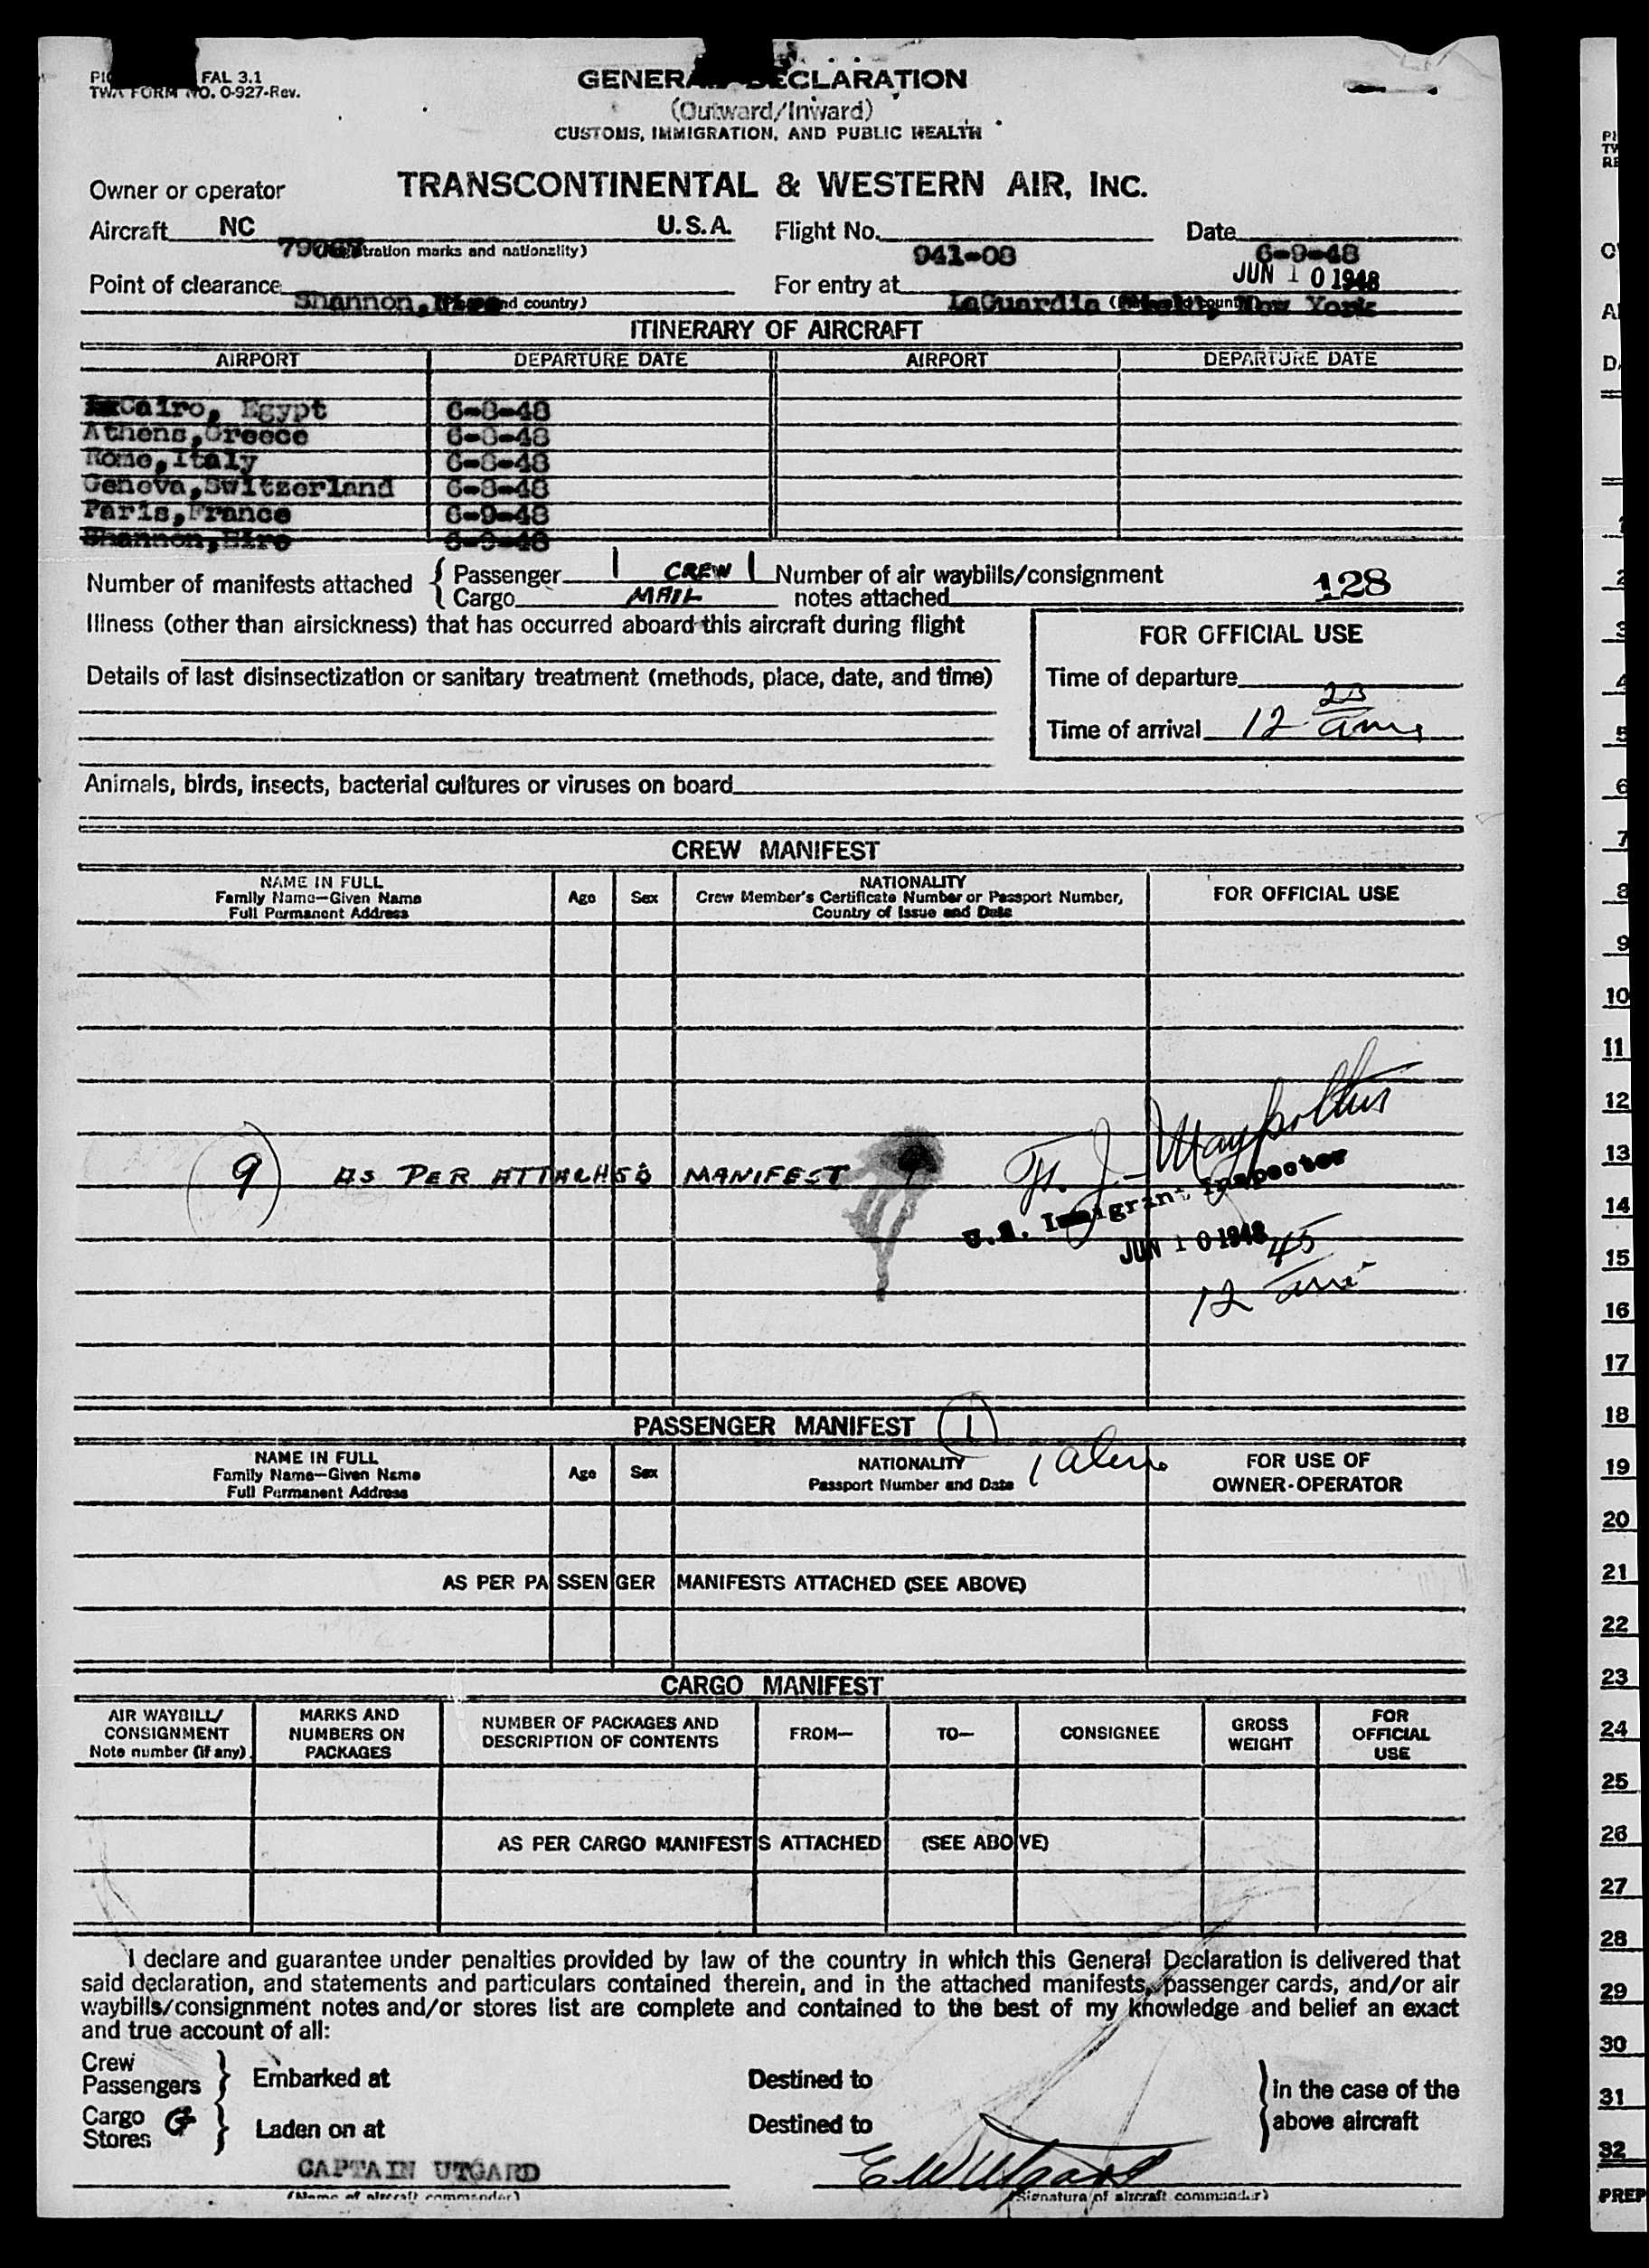 FAL 3.1
TWA FORM NO. O-927-Rev.
GENERAL DECLARATION
(Outward/Inward)
CUSTOMS, IMMIGRATION, AND PUBLIC HEALTH
Owner or operator TRANSCONTINENTAL & WESTERN AIR, INC.
Aircraft NC U.S.A. Flight No. 941-08 Date 6-9-48
(Registration marks and nationality)
JUN 10 1948
Point of clearance Shannon, Eire For entry at LaGuardia Field, New York
(Place and country)
ITINERARY OF AIRCRAFT
AIRPORT DEPARTURE DATE AIRPORT DEPARTURE DATE
Cairo, Egypt 6-8-48
Athens, Greece 6-8-48
Rome, Italy 6-8-48
Geneva, Switzerland 6-8-48
Paris, France 6-9-48
Shannon, Eire 6-9-48
Number of manifests attached { Passenger 1 CREW 1 Number of air waybills/consignment
Cargo MAIL notes attached 128
Illness (other than airsickness) that has occurred aboard this aircraft during flight
FOR OFFICIAL USE
Details of last disinsectization or sanitary treatment (methods, place, date, and time)
Time of departure
Time of arrival 12 23 am
Animals, birds, insects, bacterial cultures or viruses on board
CREW MANIFEST
NAME IN FULL
Family Name—Given Name
Full Permanent Address
Age
Sex
NATIONALITY
Crew Member's Certificate Number or Passport Number,
Country of Issue and Date
FOR OFFICIAL USE
9 AS PER ATTACHED MANIFEST
U.S. Immigrant Inspector
JUN 10 1948
12 45 am
PASSENGER MANIFEST 1
1 alien
NAME IN FULL
Family Name—Given Name
Full Permanent Address
Age
Sex
NATIONALITY
Passport Number and Date
FOR USE OF
OWNER-OPERATOR
AS PER PASSENGER MANIFESTS ATTACHED (SEE ABOVE)
CARGO MANIFEST
AIR WAYBILL/
CONSIGNMENT
Note number (if any)
MARKS AND
NUMBERS ON
PACKAGES
NUMBER OF PACKAGES AND
DESCRIPTION OF CONTENTS
FROM—
TO—
CONSIGNEE
GROSS
WEIGHT
FOR
OFFICIAL
USE
AS PER CARGO MANIFESTS ATTACHED (SEE ABOVE)
I declare and guarantee under penalties provided by law of the country in which this General Declaration is delivered that
said declaration, and statements and particulars contained therein, and in the attached manifests, passenger cards, and/or air
waybills/consignment notes and/or stores list are complete and contained to the best of my knowledge and belief an exact
and true account of all:
Crew
Passengers } Embarked at Destined to
Cargo
Stores } Laden on at Destined to
} in the case of the
above aircraft
CAPTAIN UTGARD E W Utgard
(Name of aircraft commander) (Signature of aircraft commander)
1
2
3
4
5
6
7
8
9
10
11
12
13
14
15
16
17
18
19
20
21
22
23
24
25
26
27
28
29
30
31
32
PREP